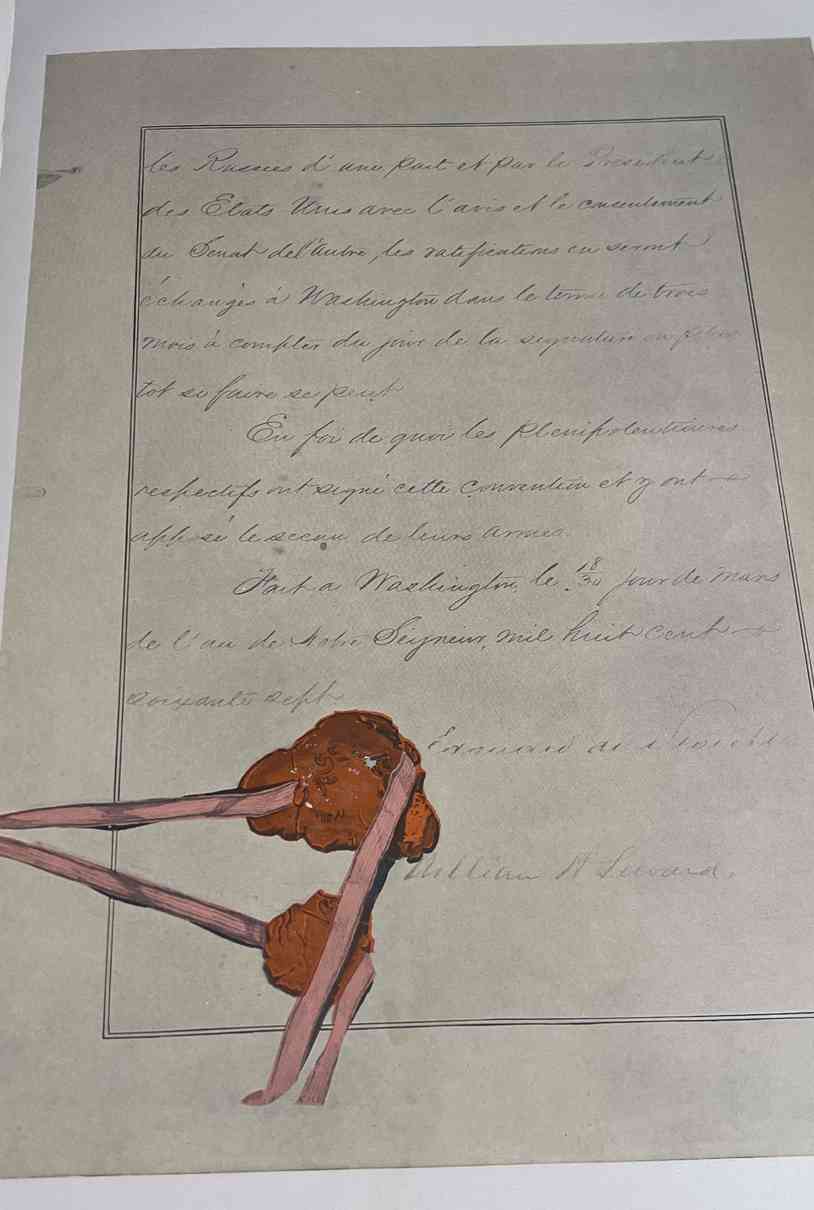 les Russies d'une part et par le Président
des Etats Unis avec l'avis et le consentement
du Senat de l'autre, les ratifications en seront
échangés à Washington dans le terme de trois
mois à compter du jour de la signature ou plus
tot si faire se peut
En foi de quoi les plenipotentiaires
respectifs ont signé cette convention et y ont
apposé le sceau de leurs armes.
Fait a Washington, le 18/30 jour de Mars
de l'an de Notre Seigneur, mil huit cent
soixante sept
Edouard de Stoeckl
William H Seward.